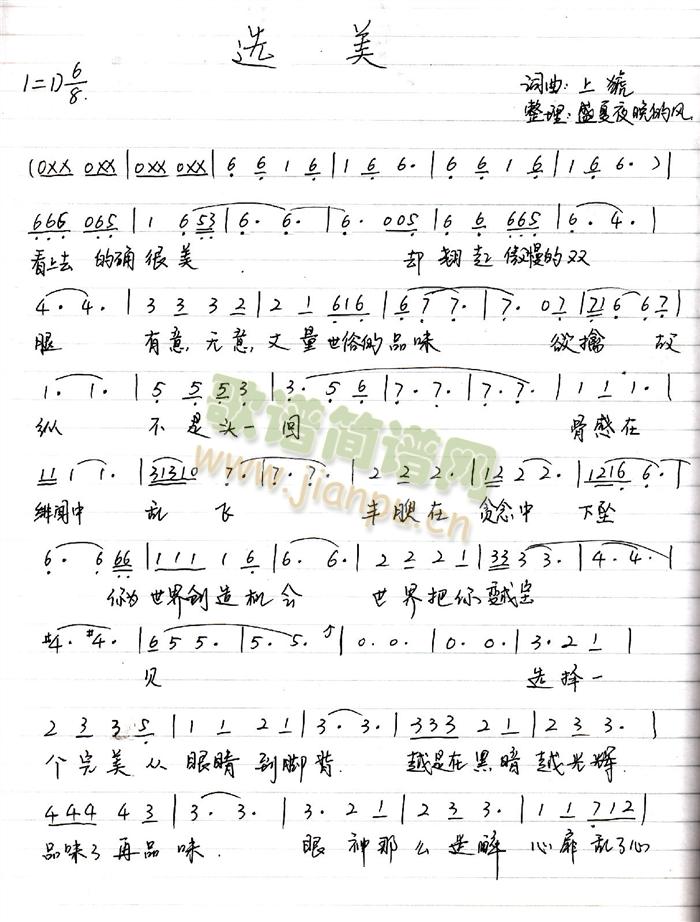 选 美
1=D 6/8
词曲: 上貌
整理: 盛夏夜晚的风
(0XX 0XX|0XX 0XX|6 6 1 6|1 6 6.|6 6 1 6|1 6 6.)|
666 065|1 6 53|6. 6.|6. 005|6 6 665|6. 4.|
看上去 的确很美 却翘起傲慢的双
4. 4.|3 3 3 2|2 1 616|6 7 7.|7. 07|716 67|
腿 有意,无意,丈量世俗的品味 欲擒 故
1. 1.|5 5 5 3|3. 5 6|7. 7.|7. 7.|1 1 1.|
纵 不是头一回 骨感在
11 1 1.|31310 7.|7. 7.|2 2 2.|12 2 2.|1216 6.|
绯闻中 乱飞 丰腴在 贪念中 下坠
6. 6 66|111 1 6|6. 6.|2 2 2 1|333 3 3.|4. 4.|
你为世界创造机会 世界把你变成宝
#4. #4.|6 5 5.|5. 5.|0. 0.|0. 0.|3. 2 1|
贝 选择一
2 3 3 5|1 1 2 1|3. 3.|333 2 1|2 3 3.|
个完美从眼睛到脚背. 越是在黑暗越光辉.
444 4 3|3. 3.|3. 2 1|2 3 3.|1 1 712|
品味了再品味. 眼神那么迷醉 心扉乱了心
歌谱简谱网
www.jianpu.cn